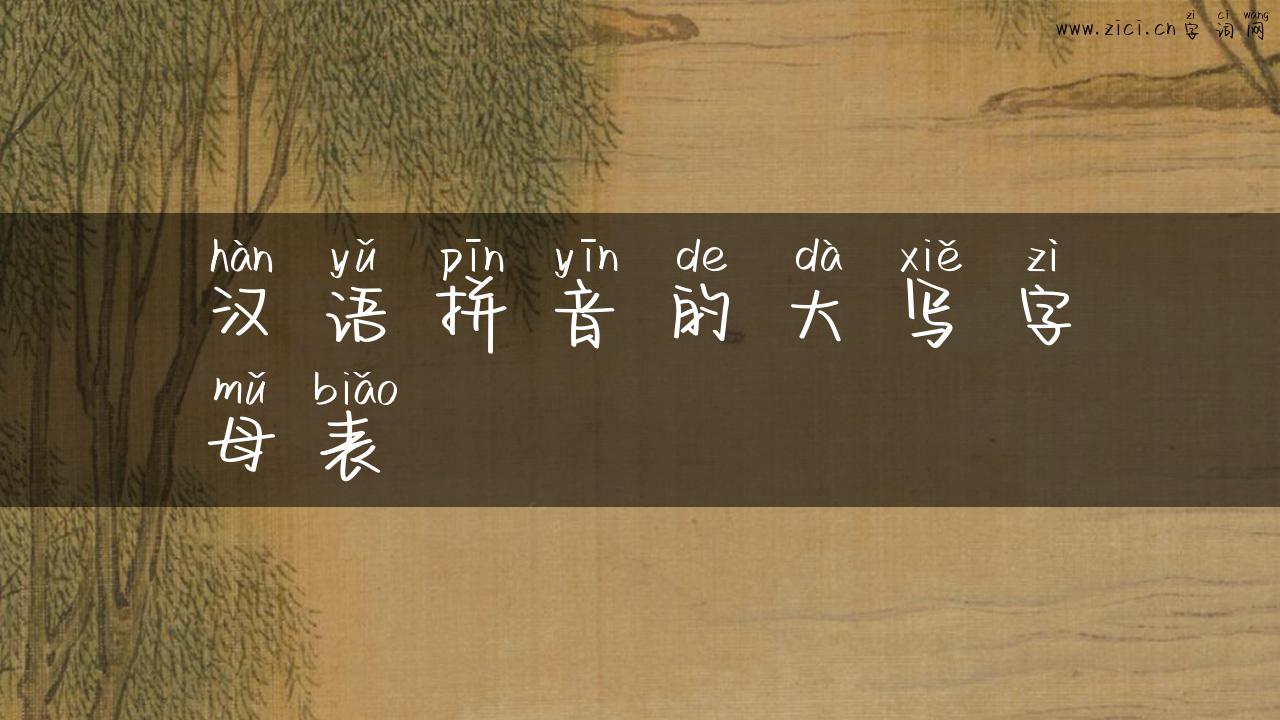 zì cí wǎng
www.zici.cn 字 词 网
hàn yǔ pīn yīn de dà xiě zì
汉 语 拼 音 的 大 写 字
mǔ biǎo
母 表